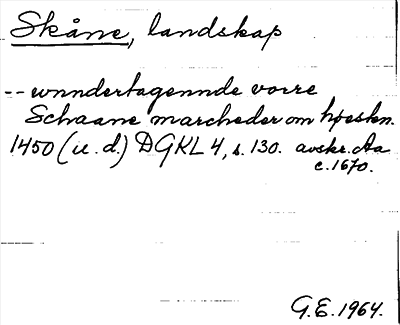 Skåne, landskap
-- wnndertagennde vorre
Schaane marcheder om høstn.
1450 (u.d.) DGKL 4, s. 130. avskr. Aa
c. 1670.
G.E. 1964.